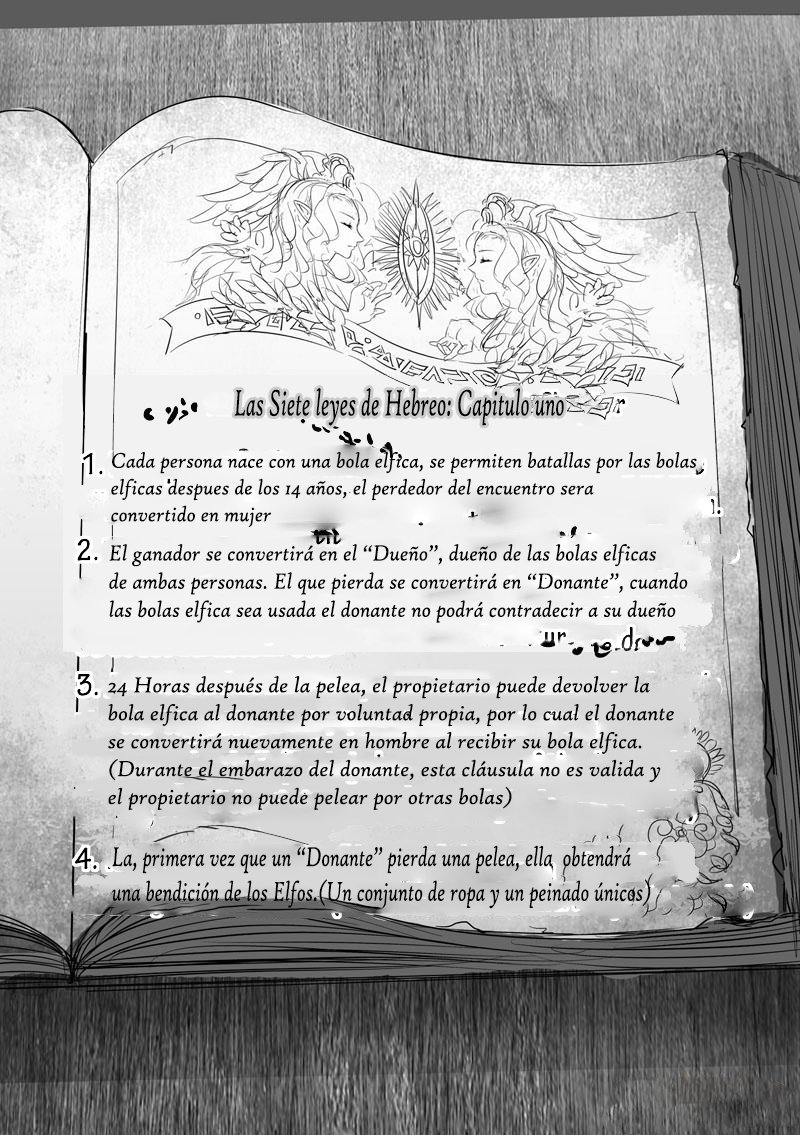 Las Siete leyes de Hebreo: Capitulo uno
1. Cada persona nace con una bola elfica, se permiten batallas por las bolas
elficas despues de los 14 años, el perdedor del encuentro sera
convertido en mujer
2. El ganador se convertirá en el “Dueño”, dueño de las bolas elficas
de ambas personas. El que pierda se convertirá en “Donante”, cuando
las bolas elfica sea usada el donante no podrá contradecir a su dueño
3. 24 Horas después de la pelea, el propietario puede devolver la
bola elfica al donante por voluntad propia, por lo cual el donante
se convertirá nuevamente en hombre al recibir su bola elfica.
(Durante el embarazo del donante, esta cláusula no es valida y
el propietario no puede pelear por otras bolas)
4. La, primera vez que un “Donante” pierda una pelea, ella obtendrá
una bendición de los Elfos.(Un conjunto de ropa y un peinado únicos)